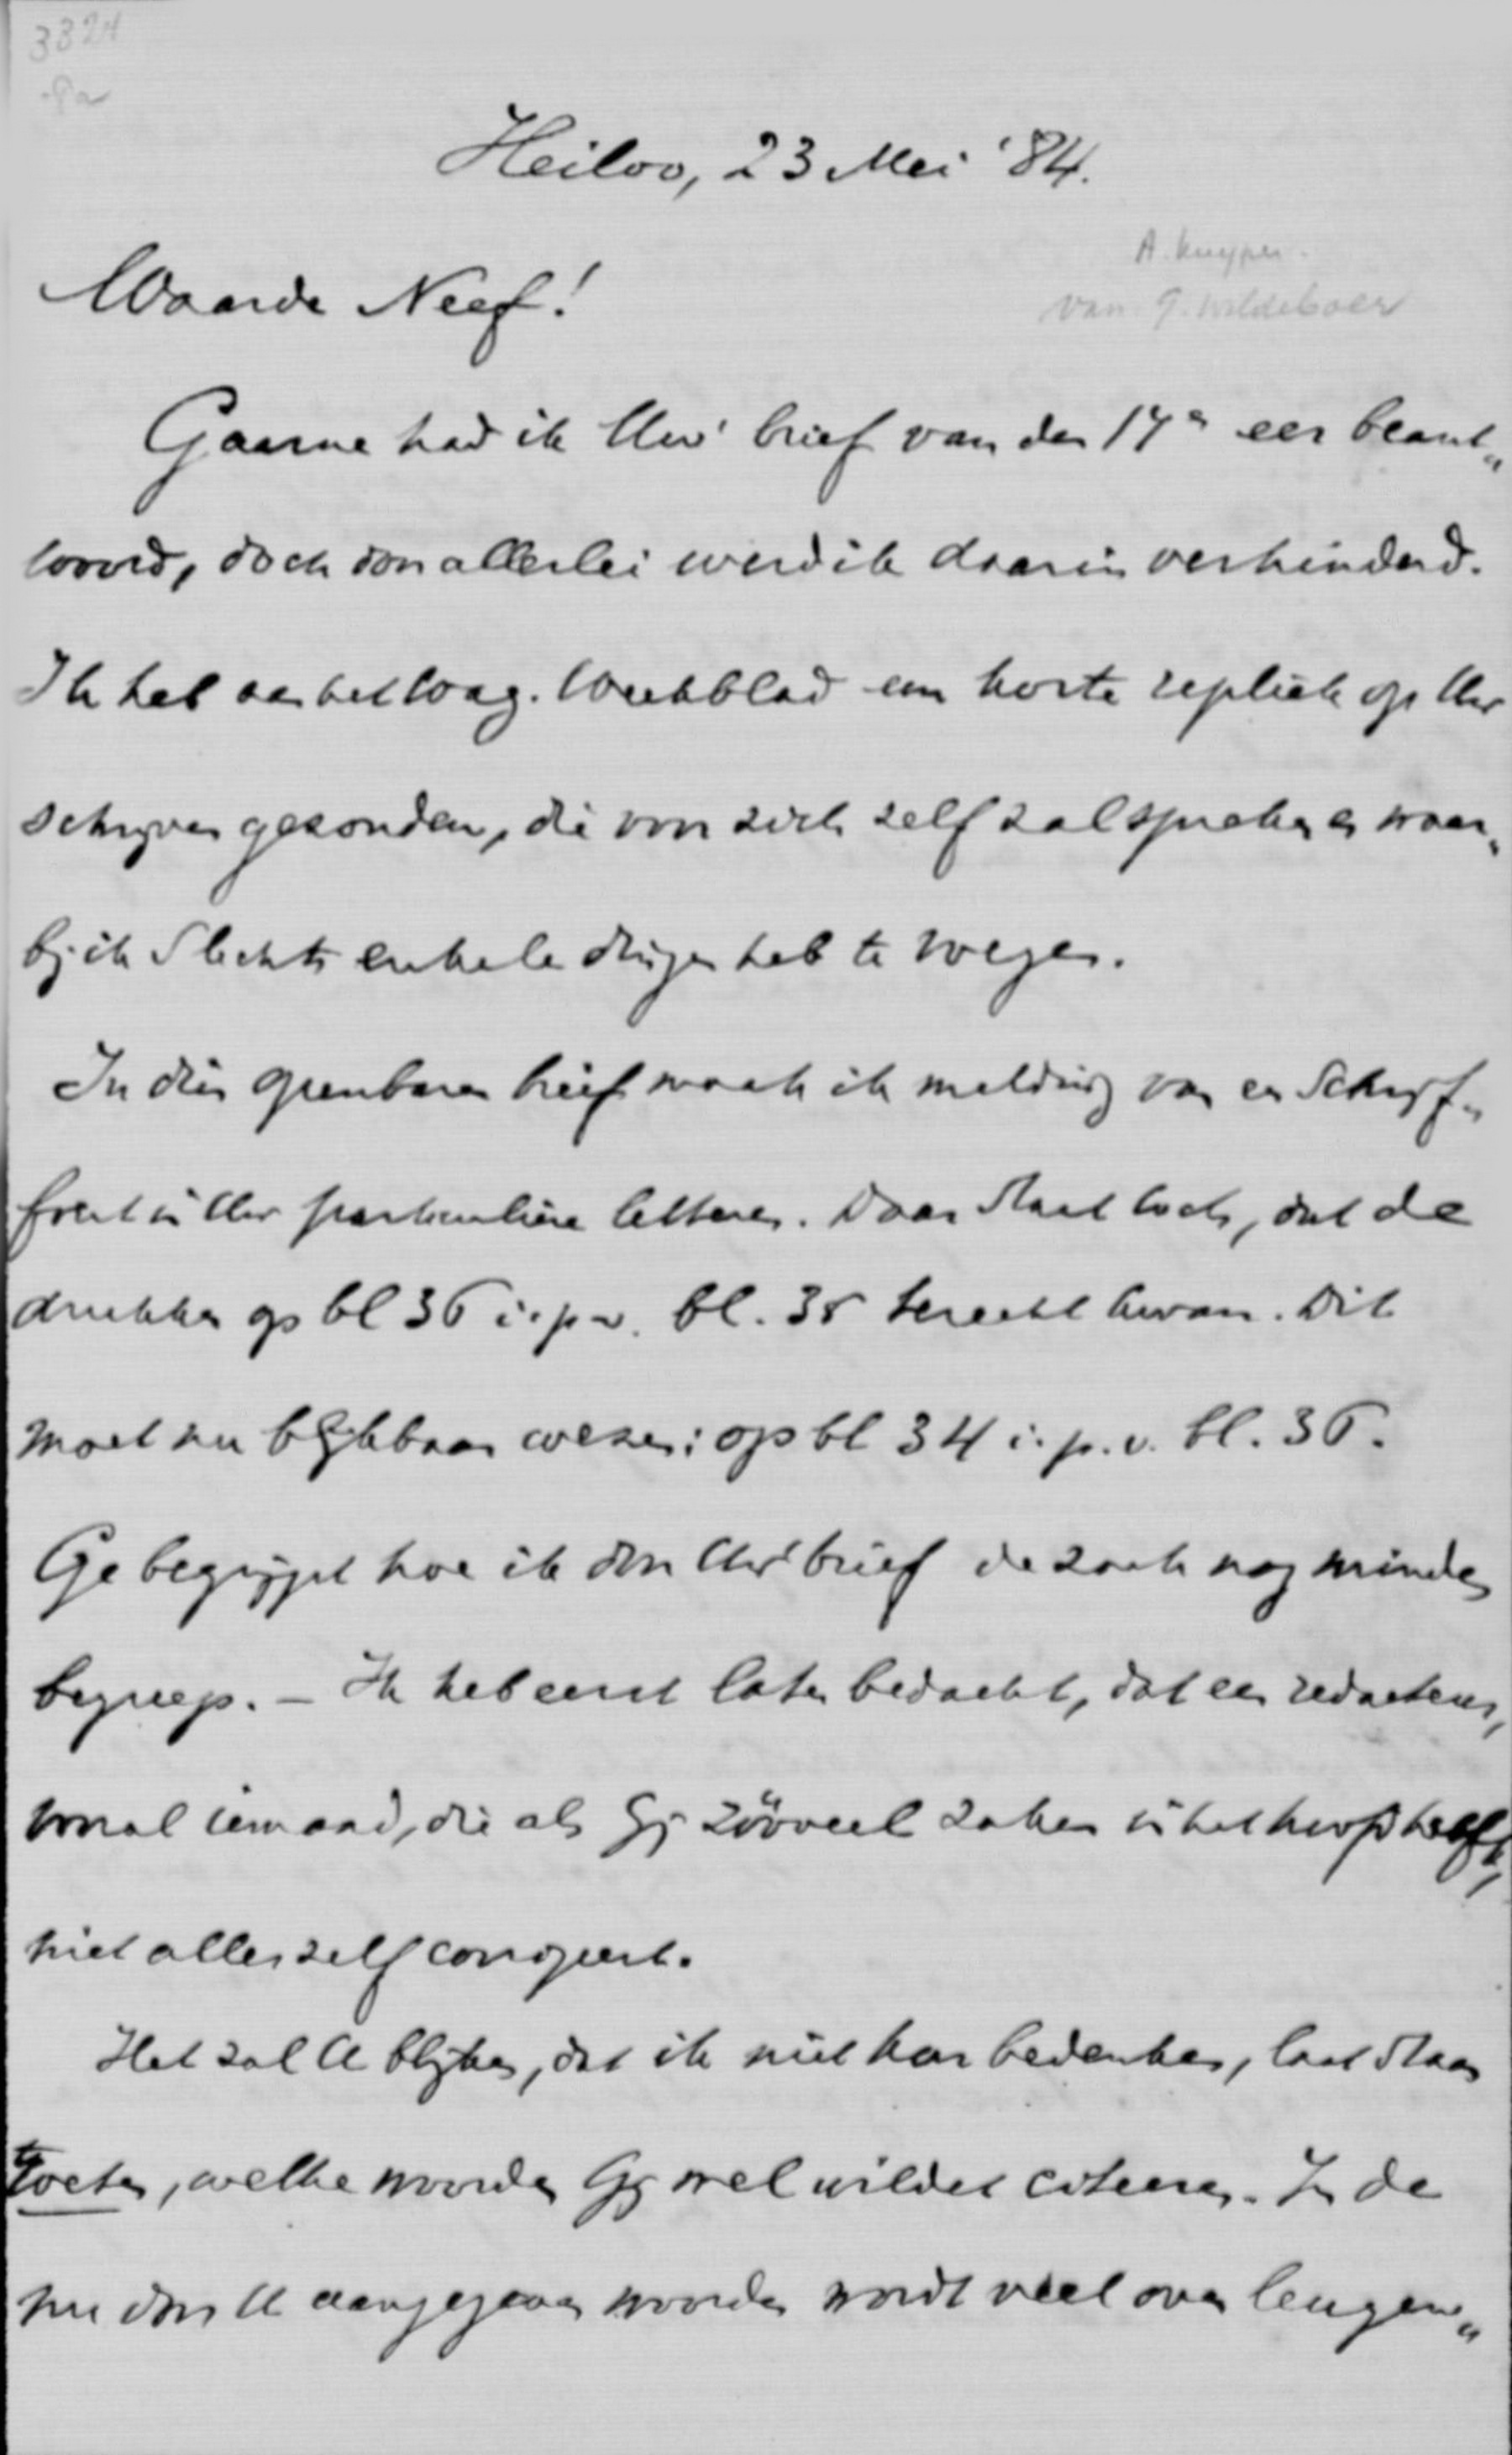 3324
Heiloo, 23 Mei '84.
A. Kuyper.
van G. Wildeboer
Waarde Neef!
Gaarne had ik Uw' brief van den 17n eer beant„
woord, doch door allerlei werd ik daarin verhinderd.
Ik heb aan het Waag. Weekblad een korte repliek op Uw
schrijven gezonden, die voor zich zelf zal spreken en waar„
bij ik slechts enkele dingen heb te voegen.
In dien openbaren brief maak ik melding van een schrijf„
fout in Uw particuliere letteren. Daar staat toch, dat de
drukker op bl 36 i.p.v. bl. 35 terecht kwam. Dit
moet nu blijkbaar wezen: op bl 34 i.p.v. bl. 36.
Ge begrijpt hoe ik door Uw' brief de zaak nog minder
begreep. — Ik heb eerst later bedacht, dat een redacteur,
vooral iemand, die als Gij zóóveel zaken in het hoofd heeft,
niet alles zelf corrigeert.
Het zal U blijken, dat ik niet kon bedenken, laat staan
weten, welke woorden Gij wel wildet citeeren. In de
nu door U aangegeven woorden wordt veel over leugen„